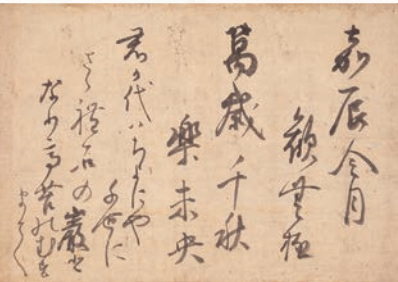 嘉辰令月
歓無極
萬歳千秋
樂未央
君が代ハちよにや
千世に
さゝ禮石の巌と
なりて苔のむす
まて